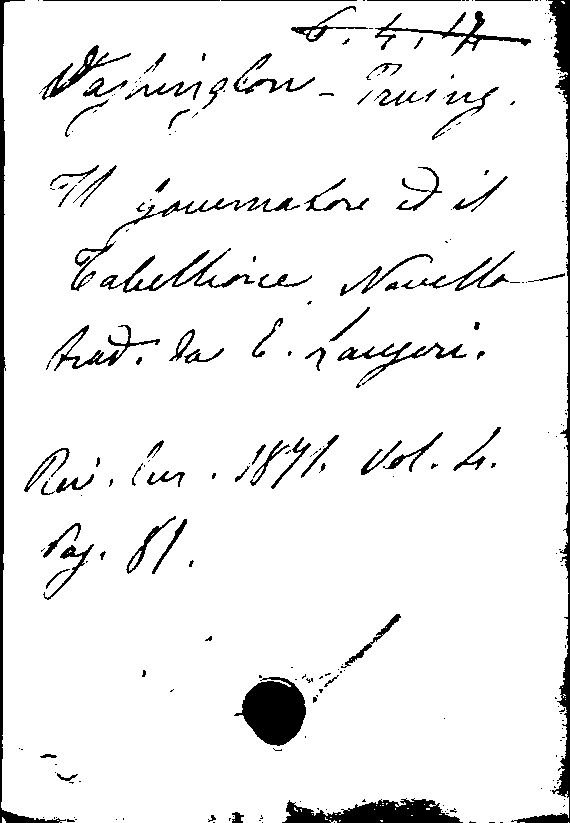 6. 4. 14
Washington - Irving.
Il governatore ed il
Tabellione Novella
trad. da E.
Riv. Eur. 1871. Vol. 4.
Pag. 81.